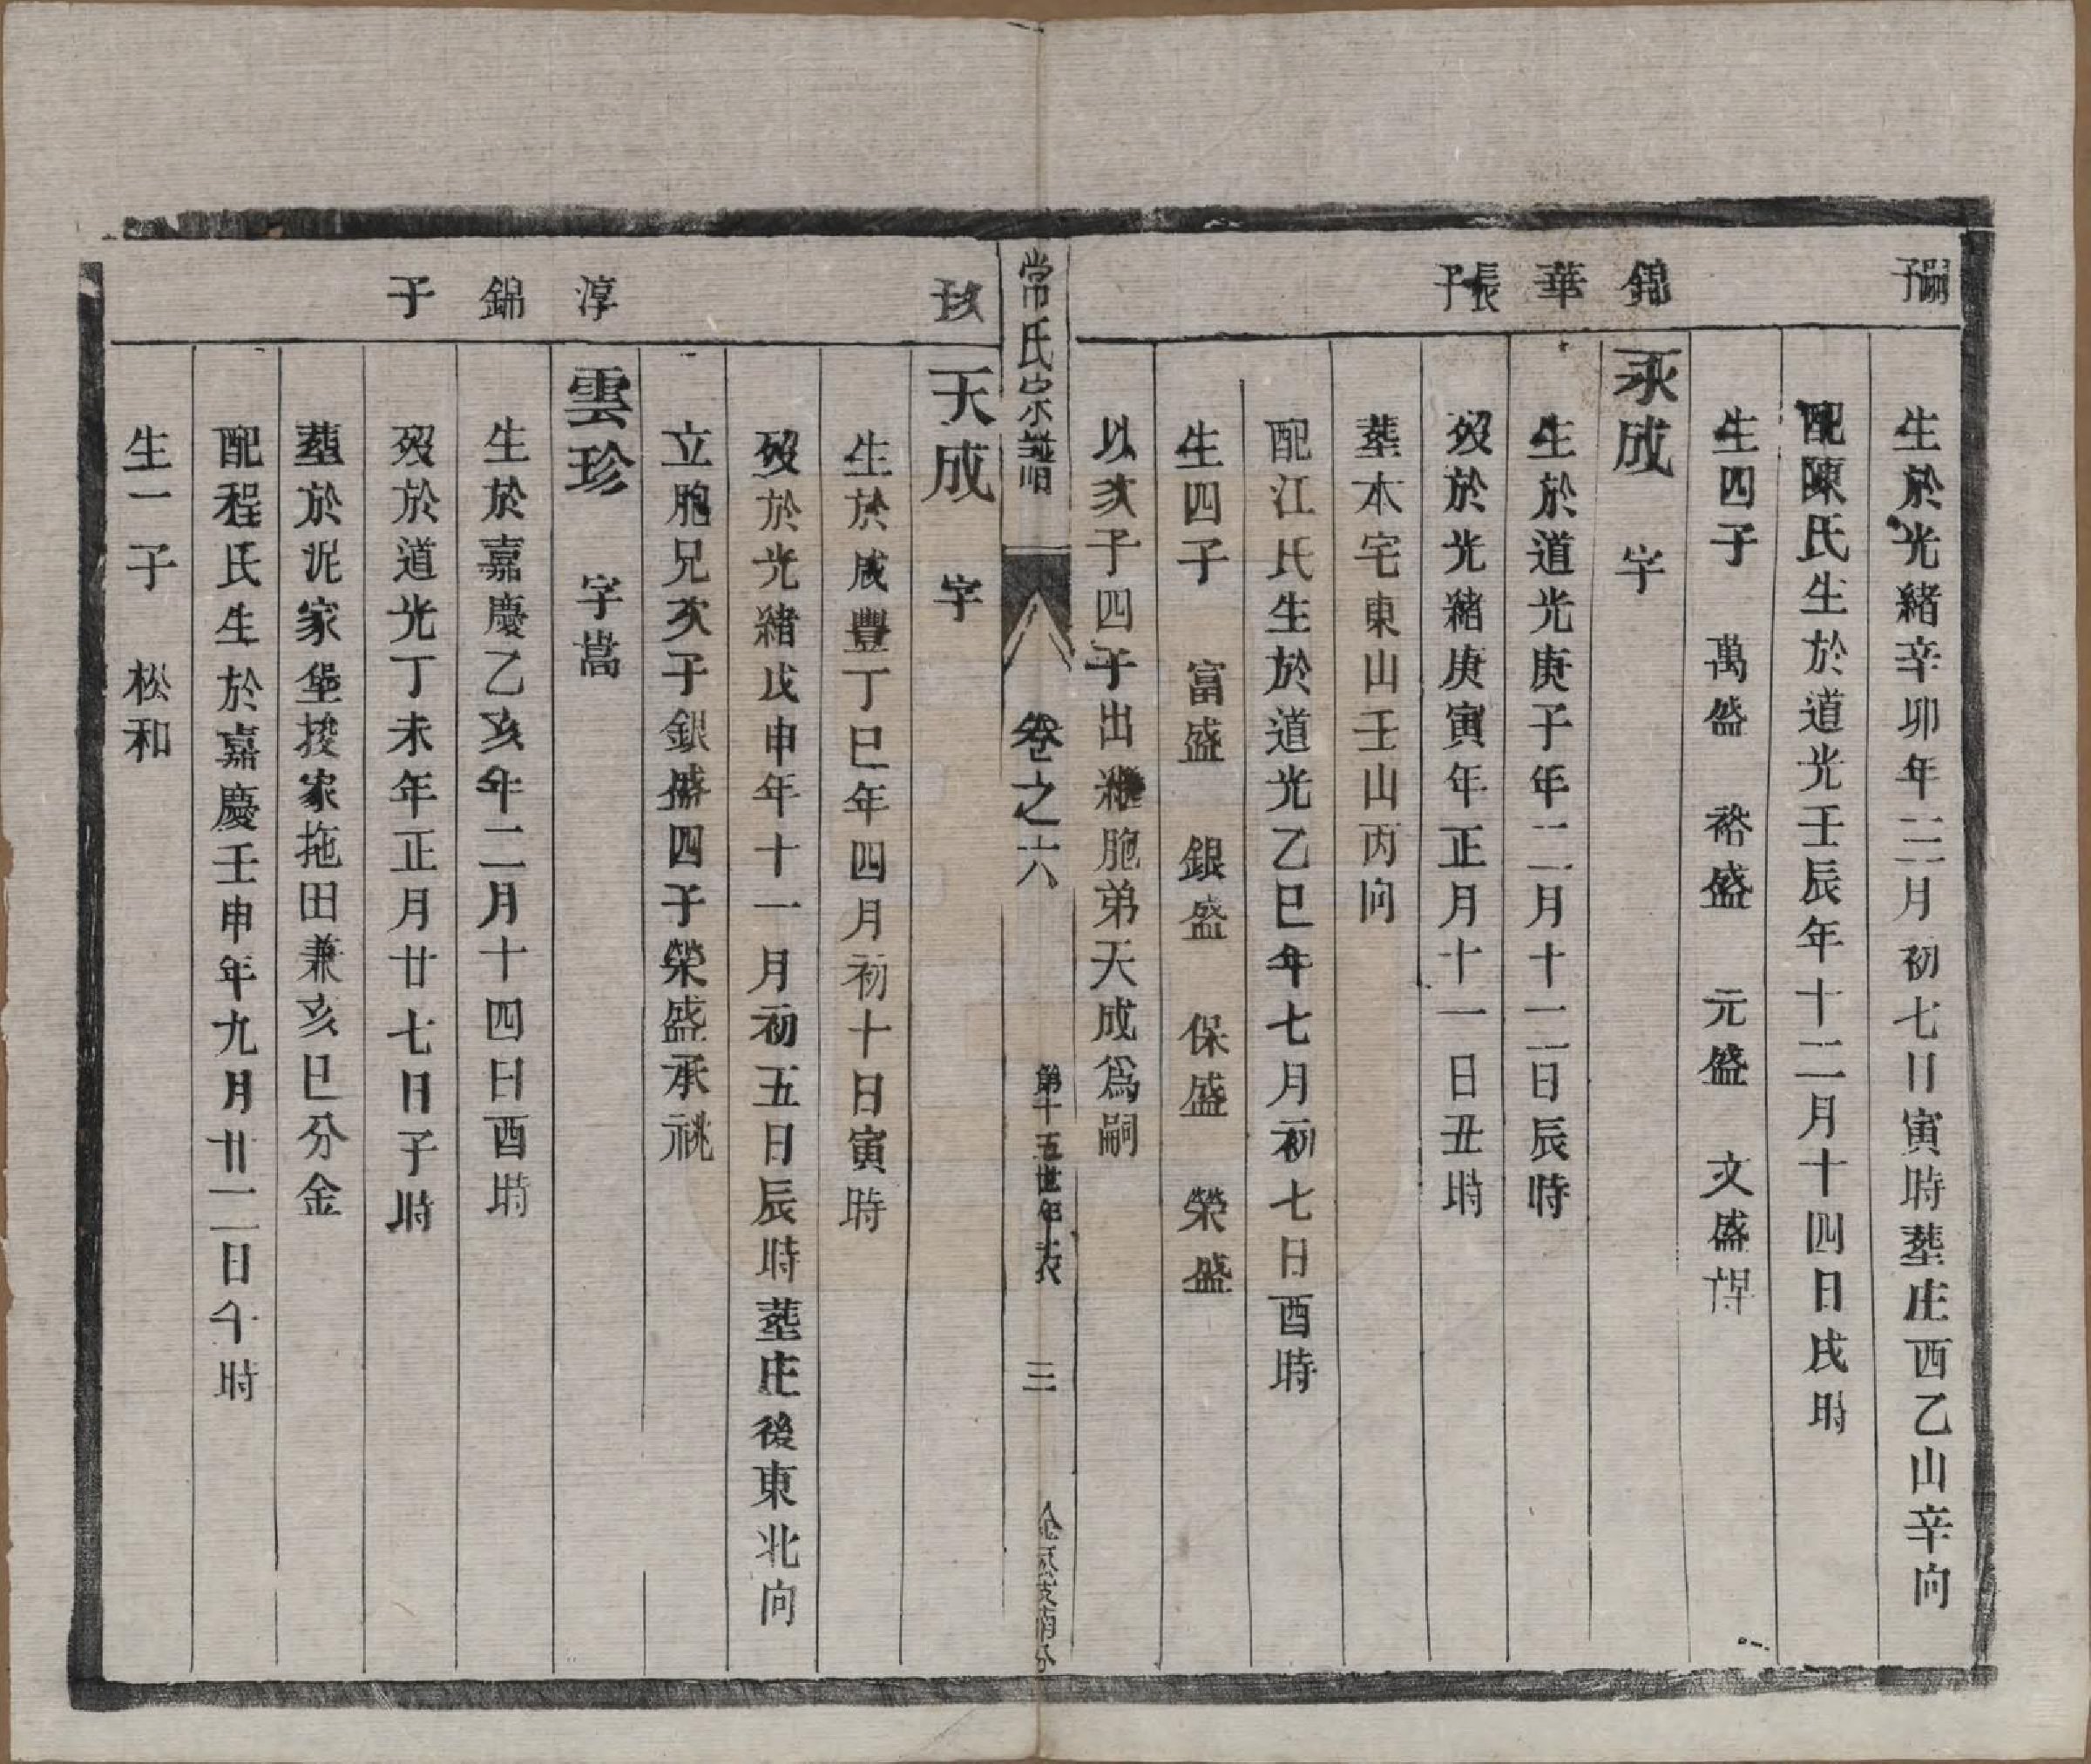 嗣子
生於光緒辛卯年三月初七日寅時塟庄西乙山辛向
配陳氏生於道光壬辰年十二月十四日戌時
生四子　萬盛　裕盛　元盛　文盛
錦華長子
永成　字
生於道光庚子年二月十二日辰時
歿於光緒庚寅年正月十一日丑時
塟本宅東山壬山丙向
配江氏生於道光乙巳年七月初七日酉時
生四子　富盛　銀盛　保盛　榮盛
以次子四子出繼胞弟天成爲嗣
常氏宗譜　卷之六　第十五世年表　三
次子
天成　字
生於咸豐丁巳年四月初十日寅時
歿於光緒戊申年十一月初五日辰時塟庄後東北向
立胞兄次子銀盛四子榮盛承祧
淳錦子
雲珍　字嵩
生於嘉慶乙亥年二月十四日酉時
歿於道光丁未年正月廿七日子時
塟於泥家堡家拖田兼亥巳分金
配程氏生於嘉慶壬申年九月廿二日午時
生一子　松和